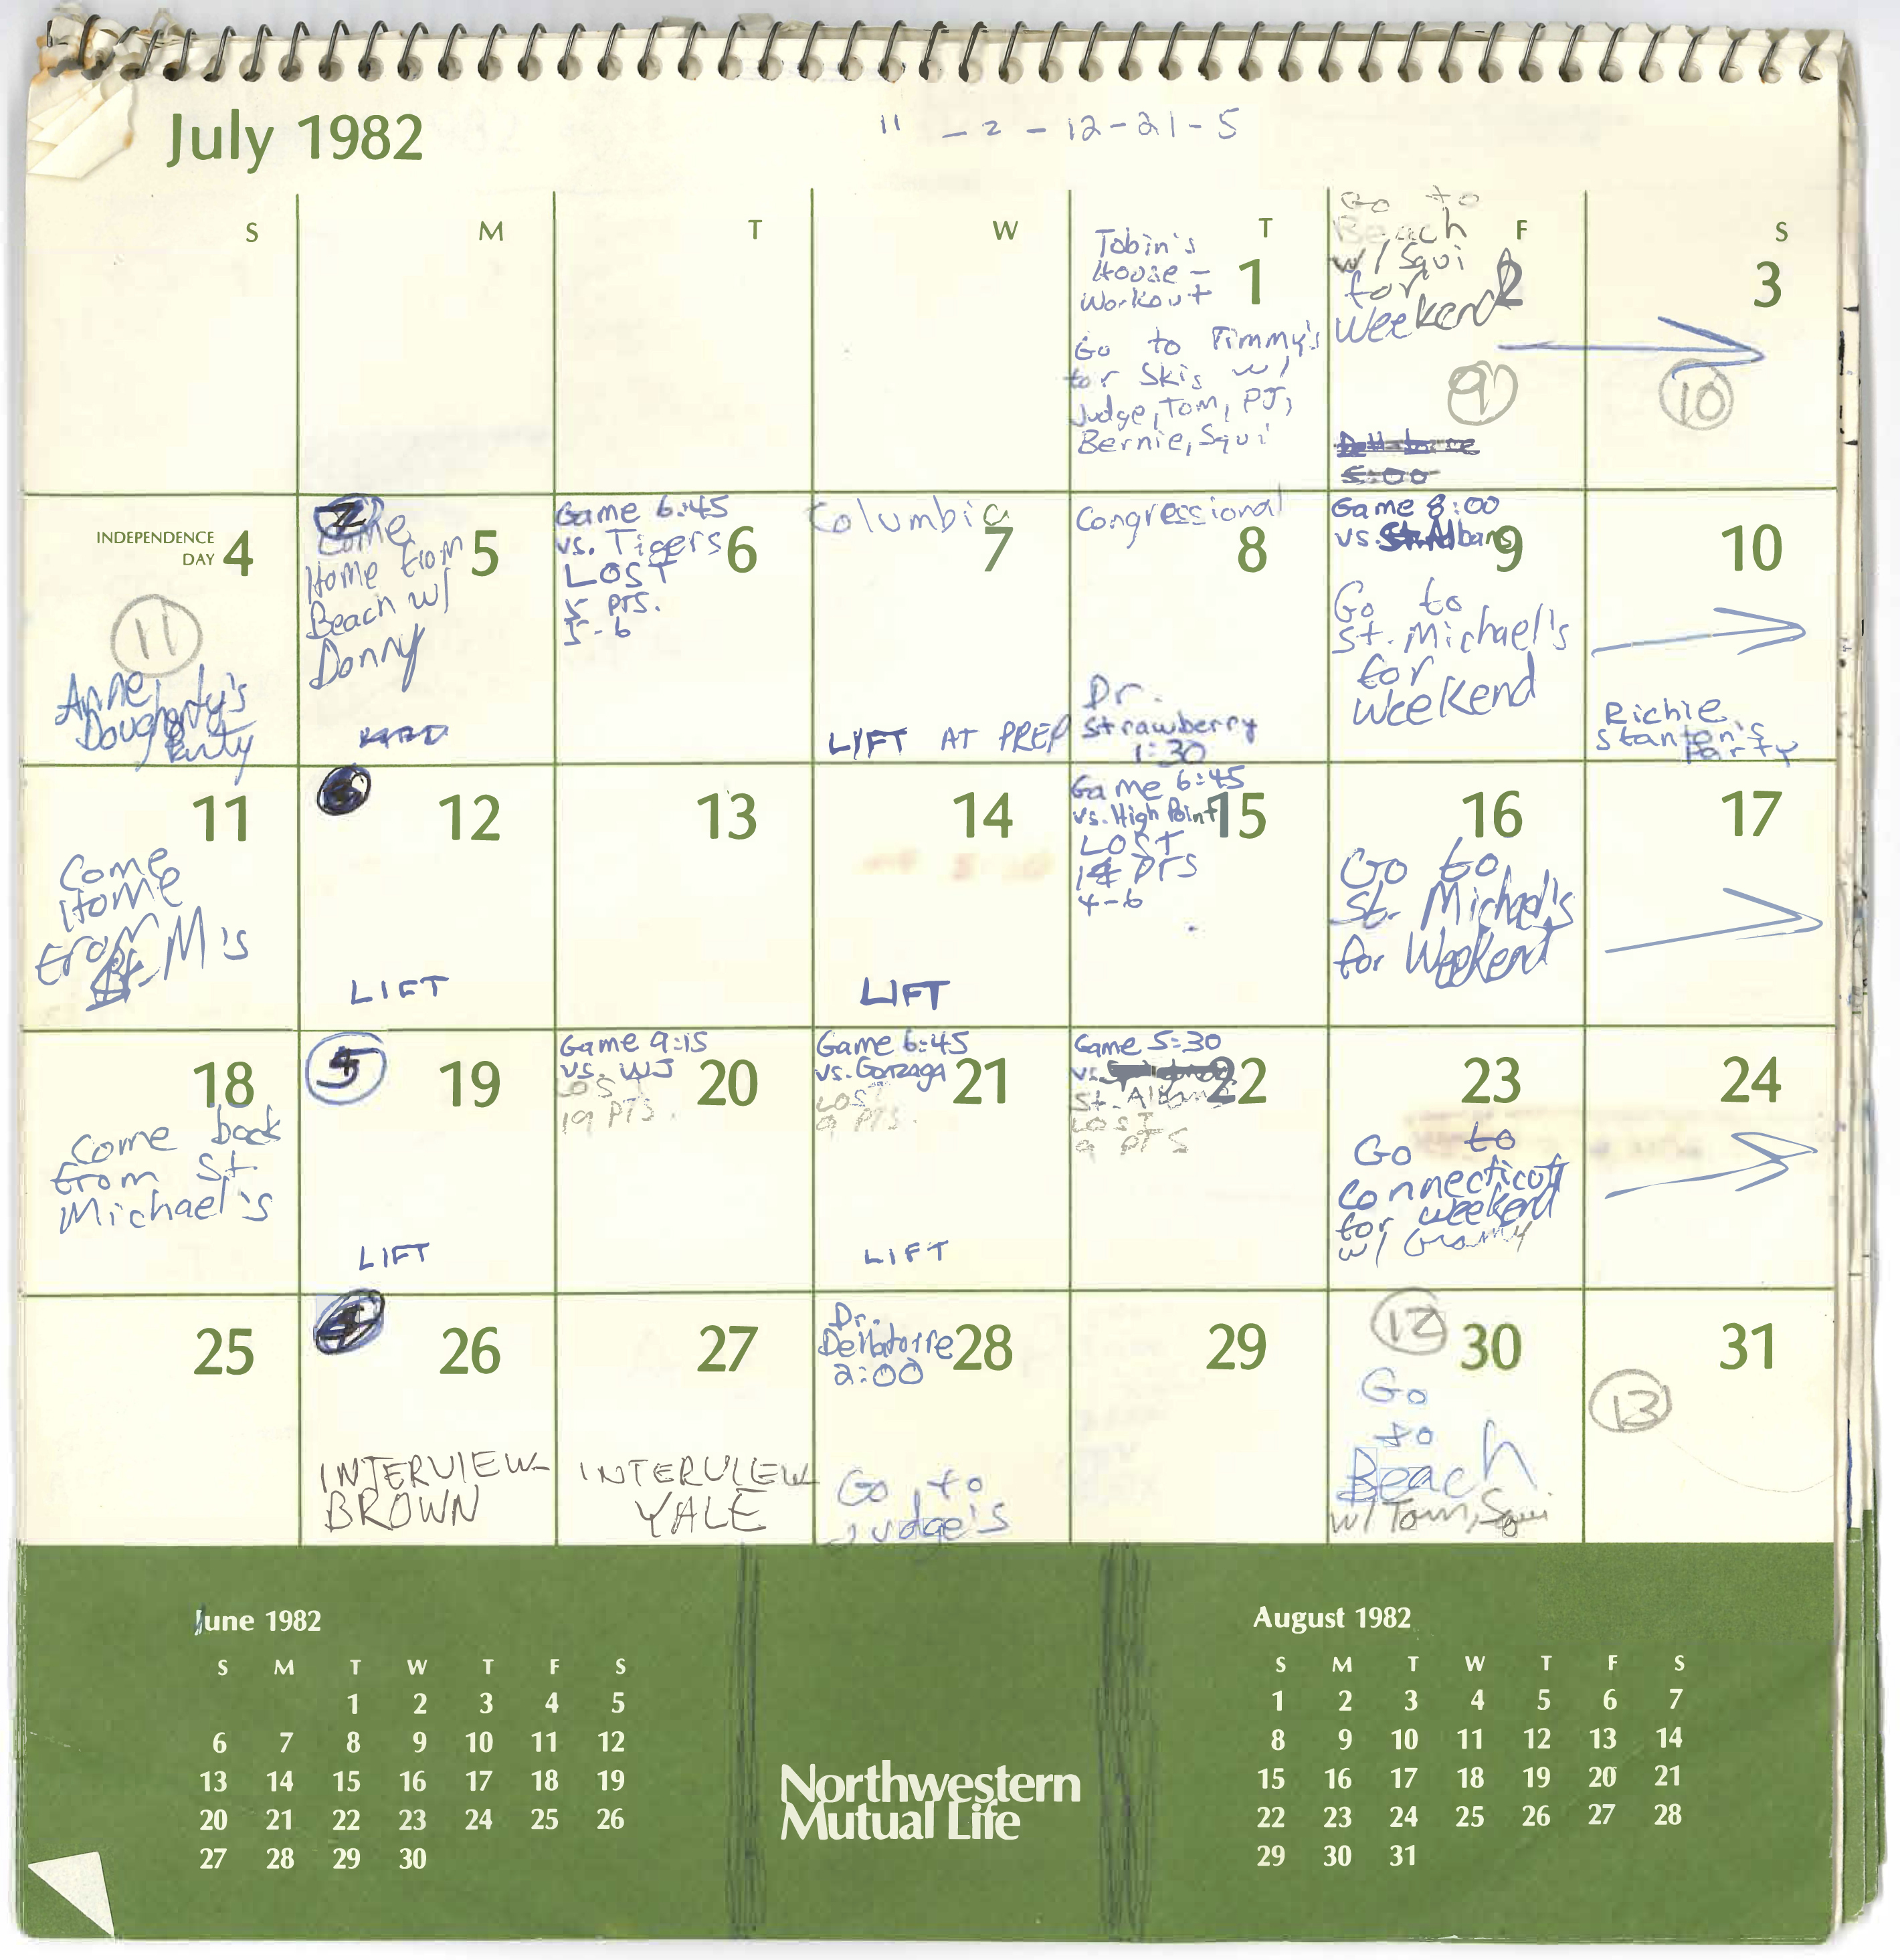 July 1982
11 - 2 - 12-21-5
S M T W T F S
Tobin's
House -
Workout
1
Go to Timmy's
for Skis w/
Judge, Tom, PJ,
Bernie, Squi
Go to
Beach
w/ Squi
for
Weekend
2
9
5:00
3
10
INDEPENDENCE
DAY 4
11
Anne
Dougherty's
Party
2
Come
Home from
Beach w/
Donny
5
Game 6:45
vs. Tigers
LOST
5 PTS.
5-6
6
Columbia
7
LIFT AT PREP
Congressional
8
Dr.
Strawberry
1:30
Game 8:00
vs. St. Albans
9
Go to
St. Michael's
for
Weekend
10
Richie
Stanton's
Party
11
Come
Home
from
St. M's
12
LIFT
13
14
LIFT
Game 6:45
vs. High Point
LOST
PTS
4-6
15
16
Go to
St. Michael's
for Weekend
17
18
Come back
from St.
Michael's
19
LIFT
Game 9:15
vs. WJ
LOST
19 PTS.
20
Game 6:45
vs. Gonzaga
LOST
9 PTS.
21
LIFT
Game 5:30
vs.
St. Albans
LOST
9 PTS
22
23
Go to
Connecticut
for weekend
w/ Grammy
24
25
26
INTERVIEW
BROWN
27
INTERVIEW
YALE
Dr.
Dellatorre
2:00
28
Go to
Judge's
29
12
30
Go
to
Beach
w/ Tom, Squi
31
13
June 1982
S M T W T F S
1 2 3 4 5
6 7 8 9 10 11 12
13 14 15 16 17 18 19
20 21 22 23 24 25 26
27 28 29 30
Northwestern
Mutual Life
August 1982
S M T W T F S
1 2 3 4 5 6 7
8 9 10 11 12 13 14
15 16 17 18 19 20 21
22 23 24 25 26 27 28
29 30 31